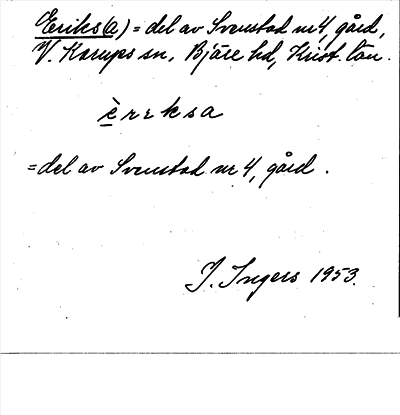 Eriks(a) = del av Svenstad nr 4, gård,
V. Karups sn, Bjäre hd, Krist. län.
è r r k s a
= del av Svenstad nr 4, gård.
I. Ingers 1953.